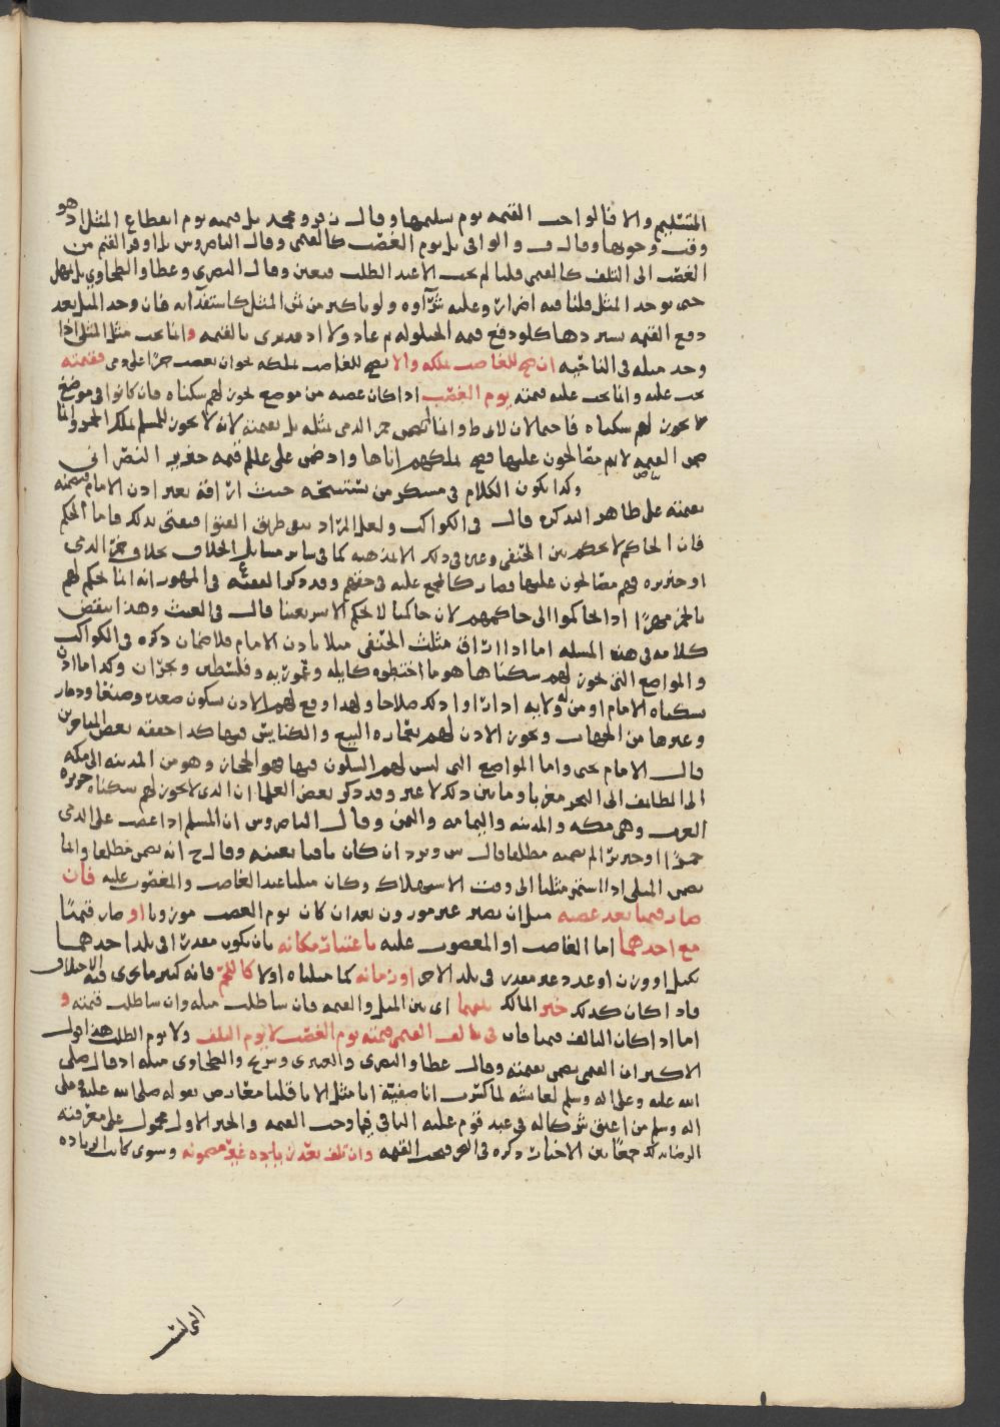 التسليم والا فالواجب القيمه يوم تسليمها وقال ز فر ومحمد بل قيمه يوم انقطاع المثل اذ هو
وقت وجوبها وقال ف والوافي بل يوم الغصب كالقيمي وقال الناصر وس بل اوفر القيم من
الغصب الى التلف كالقيمي قلنا لم يجب الا عند الطلب فتعين وقال البصري وعطا والطحاوي بل يمهل
حتى يوجد المثل قلنا فيه اضرار وعليه شرآوه ولو باكثر من ثمن المثل كاستفدآيه فان وجد المثل بعد
دفع القيمه يستردها كلو دفع قيمه الحيلوله ثم عاد ولا اذ قد برى بالقيمه وانما يجب مثل المثلي اذا
وجد مثله في الناحيه ان صح للغاصب تملكه والا يصح للغاصب تملكه نحو ان يغصب خمرًا على ذمي فقيمته
يجب عليه وانما يجب عليه قيمته يوم الغصب اذا كان غصبه من موضع يجوز لهم سكناه فان كانوا في موضع
لا يجوز لهم سكناه فاحتمالان لابي ط وانما لم يضمن خمر الذمي بمثله بل بقيمته لانه لا يجوز للمسلم تملك الخمر وانما
ضمن القيمه لانهم مصالحون عليها فصح تملكهم اياها واذ قضى علي علم قيمه خنزير النصراني
وكذا يكون الكلام في مسكر من يستبيحه حيث اراقه بغير اذن الامام قيمته
بقيمته على ظاهر التذكره قال في الكواكب ولعل المراد على طريق الفتوى فيفتى بذلك فاما الحكم
فان الحاكم لا يحكم بين الحنفي وغيره في ذلك الا بمذهبه كما في ساير مسايل الخلاف بخلاف خمر الذمي
او خنزيره فهم مصالحون عليها فصار كالمجمع عليه في حقهم وقد ذكر الفقيه ع في المهور انه انما يحكم لهم
بالخمر مهرًا اذا تحاكموا الى حاكمهم لان حاكمنا لا يحكم الا بشريعتنا قال في الغيث وهذا ينقض
كلامه في هذه المسله اما اذا اراق مثلث الحنفي مثلا باذن الامام فلا ضمان ذكره في الكواكب
والمواضع التي يجوز لهم سكناها هو ما اختطوه كايله وعموريه وفلسطين ونجران وكذا ما اذن
بسكناه الامام او من ولايه اذا رآوا ذلك صلاحا ولهذا وقع لهم الاذن بسكون صعده وصنعا وذمار
وغيرها من الجهات ويجوز الاذن لهم بعماره البيع والكنايس فيها كذا حققه بعض المتاخرين
قال الامام يحيى واما المواضع التي ليس لهم السكون فيها فهو الحجاز وهو من المدينه الى مكه
الى الطايف الى البحر مغربا وما بين ذلك لا غير وقد ذكر بعض العلما ان الذي لا يجوز لهم سكناه جزيره
العرب وهي مكه والمدينه واليمامه واليمن وقال الناصر وس ان المسلم اذا غصب على الذمي
خمرًا او خنزيرًا لم يضمنه مطلقا قال س ويرد ان كان باقيا بعينه وقال ح انه يضمن مطلقا وانما
يضمن المثلي اذا استمر مثليا الى وقت الاستهلاك وكان مثليا عند الغاصب والمغصوب عليه فان
صار قيميا بعد غصبه مثل ان يصير غير موزون بعد ان كان يوم الغصب موزونا او صار قيميًا
مع احدهما اما الغاصب او المغصوب عليه باعتبار مكانه بان يكون مقدرا في بلد احدهما
بكيل او وزن او عدد غير مقدر في بلد الاخر او زمانه كما مثلناه اولا كاللحم فانه كثير ما يجري فيه الاختلاف
فاذا كان كذلك خير المالك بينهما اي بين المثل والقيمه فان شا طلب مثله وان شا طلب قيمته و
اما اذا كان التالف قيميا فان في تالف القيمي قيمته يوم الغصب لا يوم التلف ولا يوم الطلب هذا قول
الاكثر ان القيمي يضمن بقيمته وقال عطا والبصري والعنبري وشريح والطحاوي مثله اذ قال صلى
الله عليه وعلى اله وسلم لعايشه لما كسرت انا صفيّه انا مثل الانا قلنا معارض بقوله صلى الله عليه وعلى
اله وسلم من اعتق شركا له في عبد قوم عليه الباقي فاوجب القيمه والخبر الاول محمول على معرفته
الرضا بذلك جمعًا بين الاخبار ذكره في البحر فيجب القيمه وان تلف بعد زياده غير مضمونه وسوى كانت الزياده